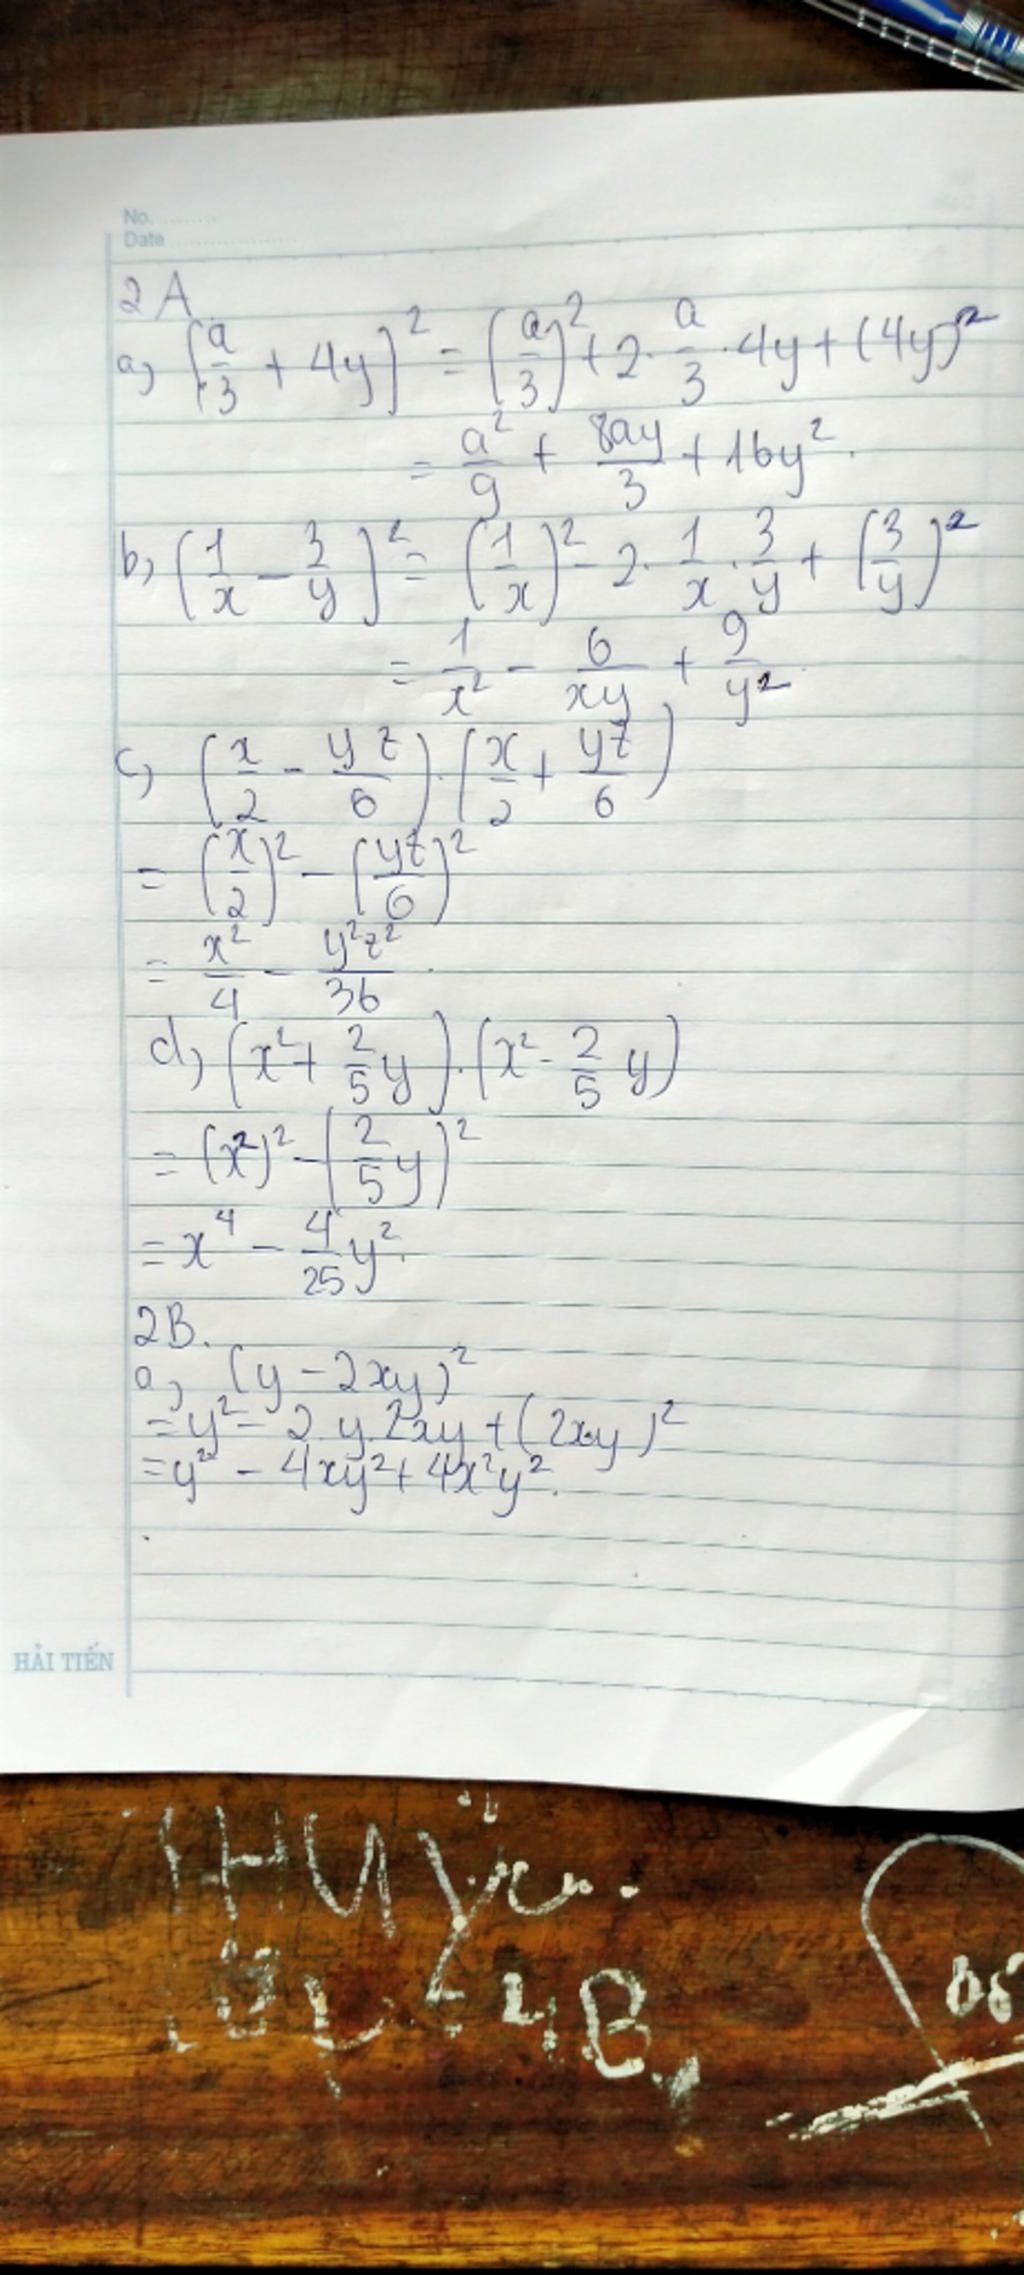 No. ........
Date ..................
2A
a, (a/3 + 4y)² = (a/3)² + 2·a/3·4y + (4y)²
= a²/9 + 8ay/3 + 16y².
b, (1/x - 3/y)² = (1/x)² - 2·1/x·3/y + (3/y)²
= 1/x² - 6/xy + 9/y².
c, (x/2 - yz/6)·(x/2 + yz/6)
= (x/2)² - (yz/6)²
= x²/4 - y²z²/36.
d, (x² + 2/5 y)·(x² - 2/5 y)
= (x²)² - (2/5 y)²
= x⁴ - 4/25 y².
2B.
a, (y - 2xy)²
= y² - 2.y.2xy + (2xy)²
= y² - 4xy² + 4x²y².
HẢI TIẾN